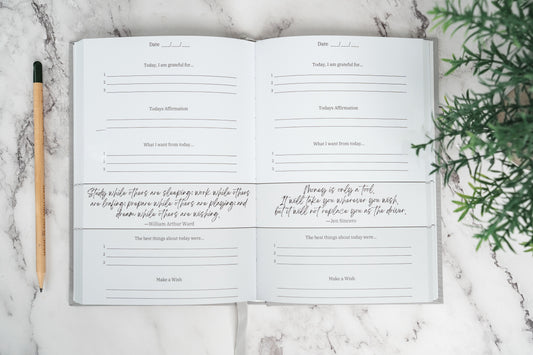 Date __/__/__
Today, I am grateful for...
1
2
3
Todays Affirmation
What I want from today...
1
2
3
Study while others are sleeping; work while others
are loafing; prepare while others are playing; and
dream while others are wishing.
—William Arthur Ward
The best things about today were...
1
2
3
Make a Wish
Date __/__/__
Today, I am grateful for...
1
2
3
Todays Affirmation
What I want from today...
1
2
3
Money is only a tool.
It will take you wherever you wish,
but it will not replace you as the driver.
—Jen Sincero
The best things about today were...
1
2
3
Make a Wish